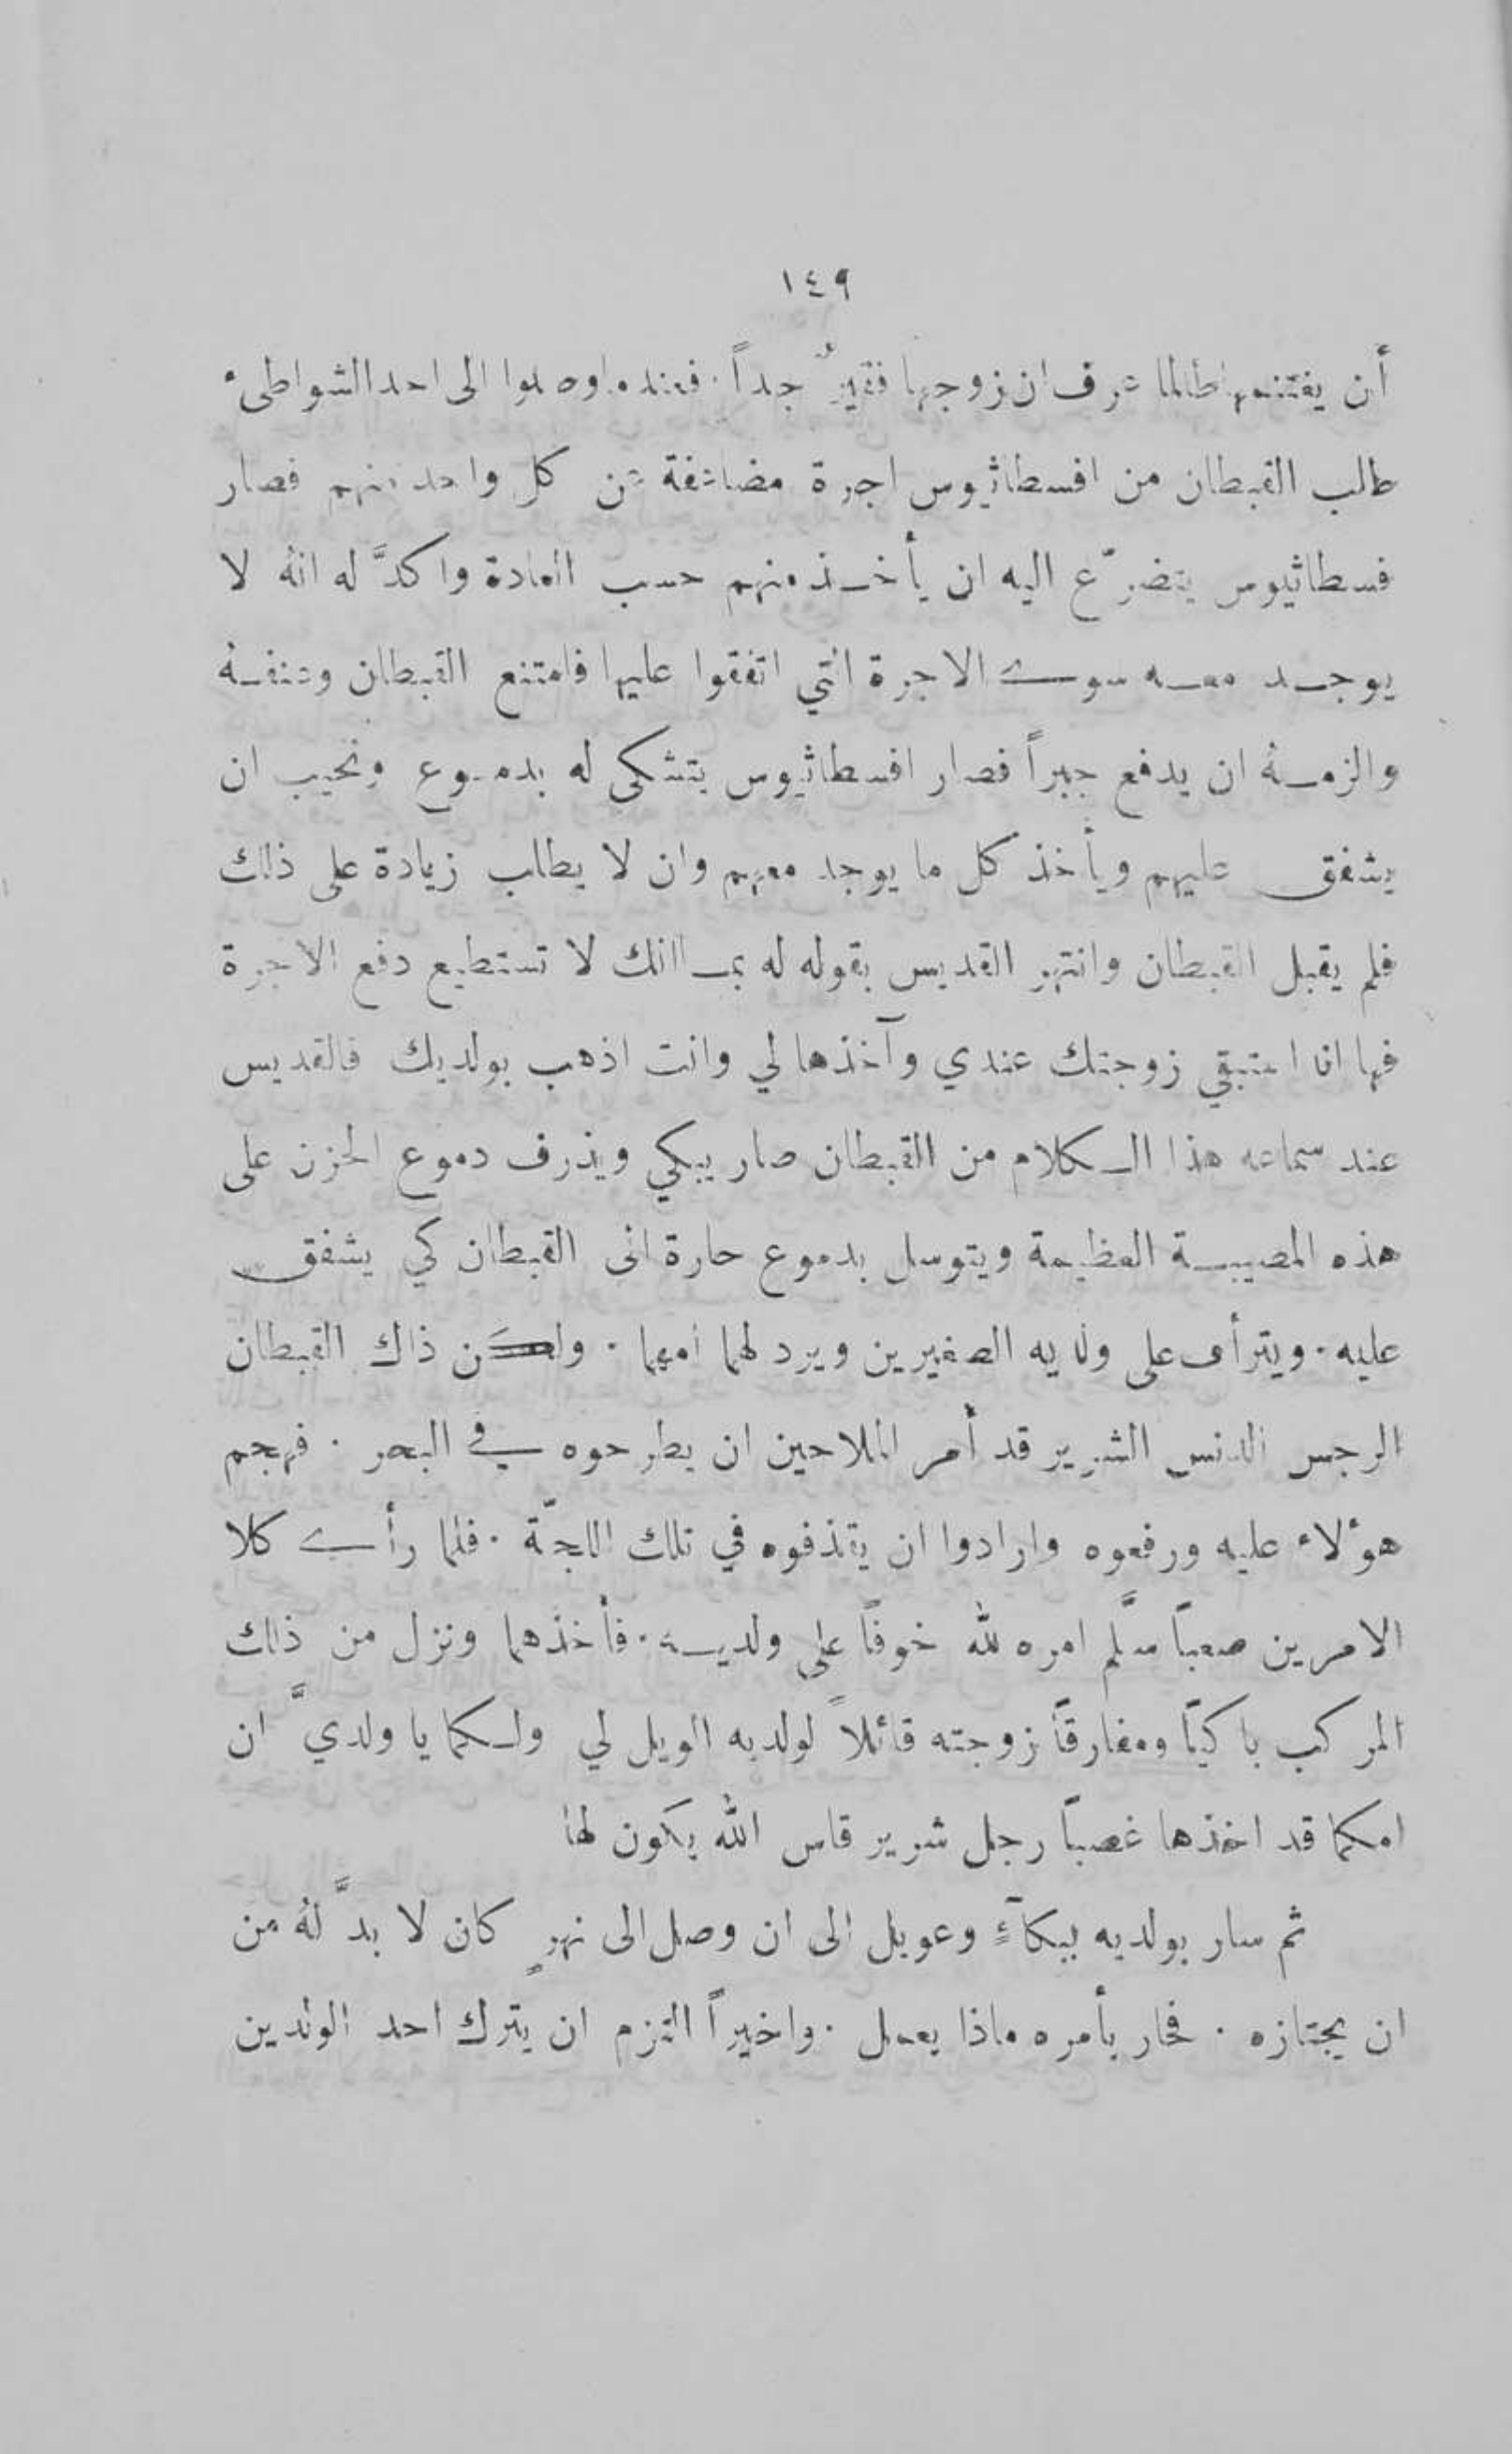 ١٤٩
أن يغتنمها طالما عرف ان زوجها فقيرٌ جداً . فعندما وصلوا الى احد الشواطىء
طلب القبطان من افسطاثيوس اجرة مضاعفة عن كل واحد منهم فصار
فسطاثيوس يتضرّع اليه ان يأخذ منهم حسب العادة واكدَّ له انهُ لا
يوجد معه سوى الاجرة التي اتفقوا عليها فامتنع القبطان وعنفهُ
والزمهُ ان يدفع جبراً فصار افسطاثيوس يتشكى له بدموع ونحيب ان
يشفق عليهم ويأخذ كل ما يوجد معهم وان لا يطلب زيادة على ذلك
فلم يقبل القبطان وانتهر القديس بقوله له بما انك لا تستطيع دفع الاجرة
فها انا استبقي زوجتك عندي وآخذها لي وانت اذهب بولديك فالقديس
عند سماعه هذا الكلام من القبطان صار يبكي ويذرف دموع الحزن على
هذه المصيبة العظيمة ويتوسل بدموع حارة الى القبطان كي يشفق
عليه . ويترأى على ولديه الصغيرين ويرد لهما أمهما . ولكَن ذاك القبطان
الرجس الدنس الشرير قد أمر الملاحين ان يطرحوه في البحر . فهجم
هوُلاء عليه ورفعوه وارادوا ان يقذفوه في تلك اللجّة . فلما رأى كلا
الامرين صعباً سلَّم امره لله خوفاً على ولديه . فأخذهما ونزل من ذلك
المركب باكياً ومفارقاً زوجته قائلاً لولديه الويل لي ولكما يا ولديَّ ان
امكما قد اخذها غصباً رجل شرير قاس الله يكون لها
ثم سار بولديه ببكآءٍ وعويل الى ان وصل الى نهرٍ كان لا بدَّ لهُ من
ان يجتازه . فحار بأمره ماذا يعمل . واخيراً التزم ان يترك احد الولدين